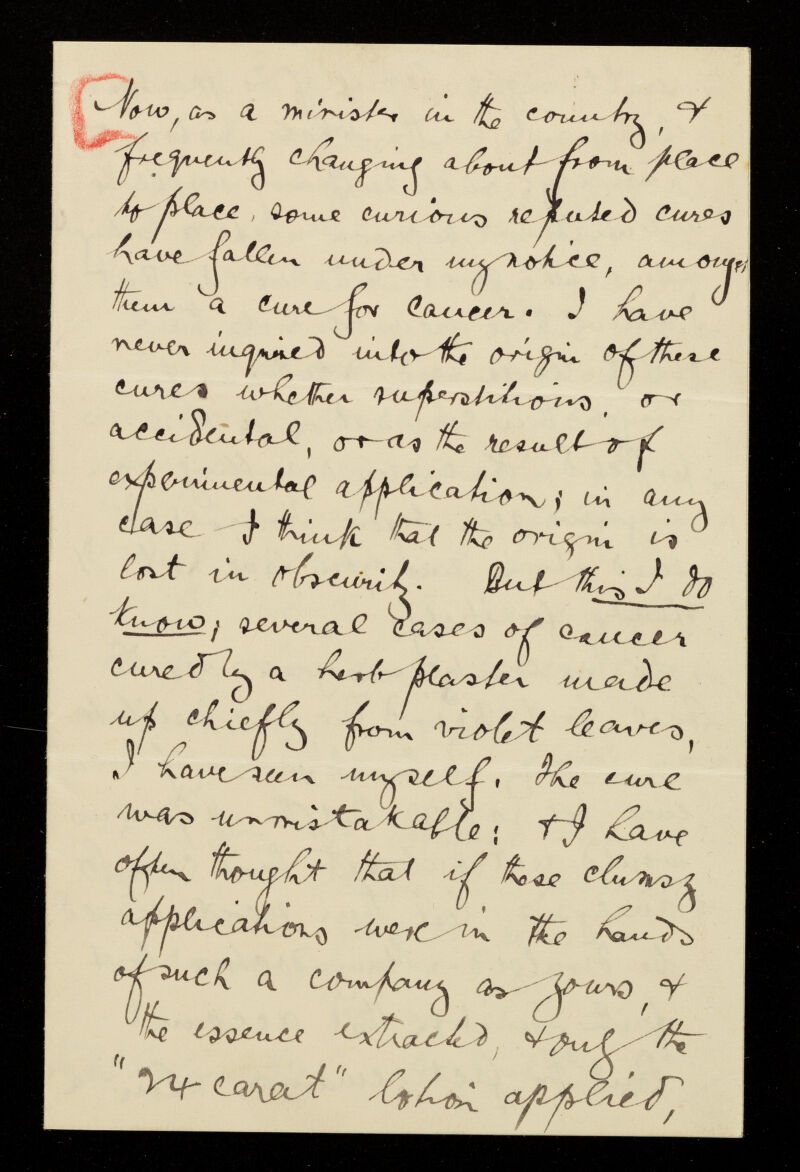 Now, as a minister in the country, &
frequently changing about from place
to place, some curious reputed cures
have fallen under my notice, amongst
them a cure for cancer. I have
never inquired into the origin of these
cures whether superstitious, or
accidental, or as the result of
experimental application; in any
case I think that the origin is
lost in obscurity. But this I do
know; several cases of cancer
cured by a herb plaster made
up chiefly from violet leaves,
I have seen myself. The cure
was unmistakable: & I have
often thought that if these clumsy
applications were in the hands
of such a company as yours, &
the essence extracted, & only the
"24 carat" lotion applied,